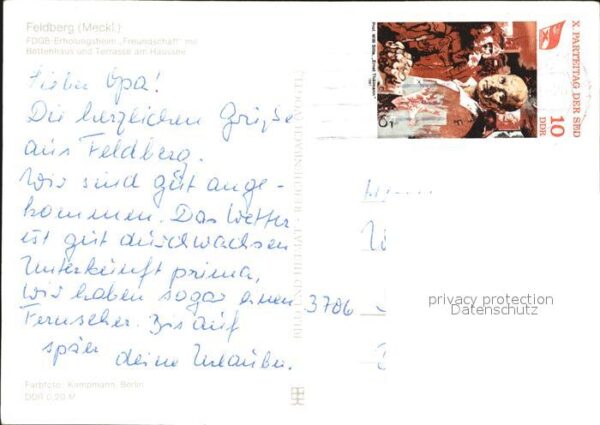 Feldberg (Meckl.)
FDGB-Erholungsheim „Freundschaft" mit
Bettenhaus und Terrasse am Haussee
Lieber Opa!
Die herzlichen Grüße
aus Feldberg.
Wir sind gut ange-
kommen. Das Wetter
ist gut durchwachsen
Unterkunft prima,
Wir haben sogar einen
Fernseher. Bis auf
später deine Urlauber.
Farbfoto: Kampmann, Berlin
DDR 0,20 M
BILD UND HEIMAT REICHENBACH (VOGTL)
X. PARTEITAG DER SED
10
DDR
3706
privacy protection
Datenschutz